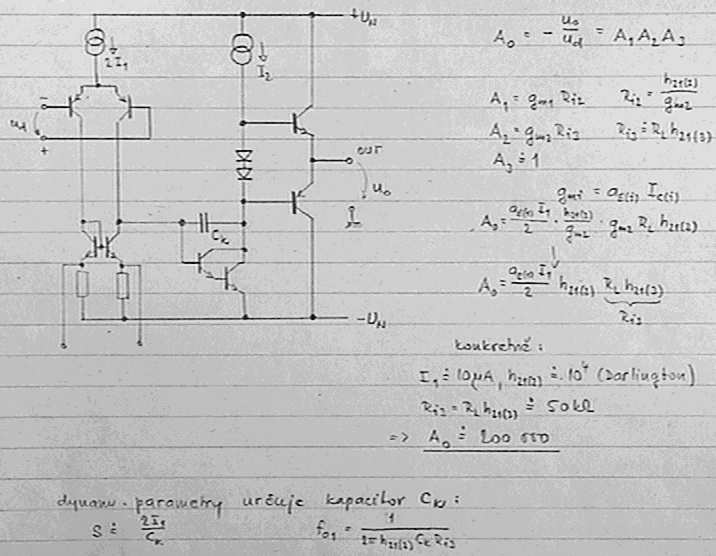 +U_N
2I₁
I₂
A₀ = - u₀/u_d = A₁ A₂ A₃
A₁ = g_m1 R_i2    R_i2 = h_21(2)/g_m2
A₂ = g_m2 R_i3    R_i3 ≐ R_L h_21(3)
A₃ ≐ 1
g_mi = a_E(i) I_C(i)
A₀ = a_E(1) I₁/2 · h_21(2)/g_m2 · g_m2 R_L h_21(3)
↓
A₀ = a_E(1) I₁/2 h_21(2) R_L h_21(3)
R_i3
−
u_d
+
out
u₀
C_K
-U_N
konkretně:
I₁ ≐ 10μA, h_21(2) ≐ 10⁴ (Darlington)
R_i3 = R_L h_21(3) ≐ 50kΩ
=> A₀ ≐ 200 000
dynam. parametry určuje kapacitor C_K:
S ≐ 2I₁/C_K    f_01 = 1/(2π h_21(2) C_K R_i3)